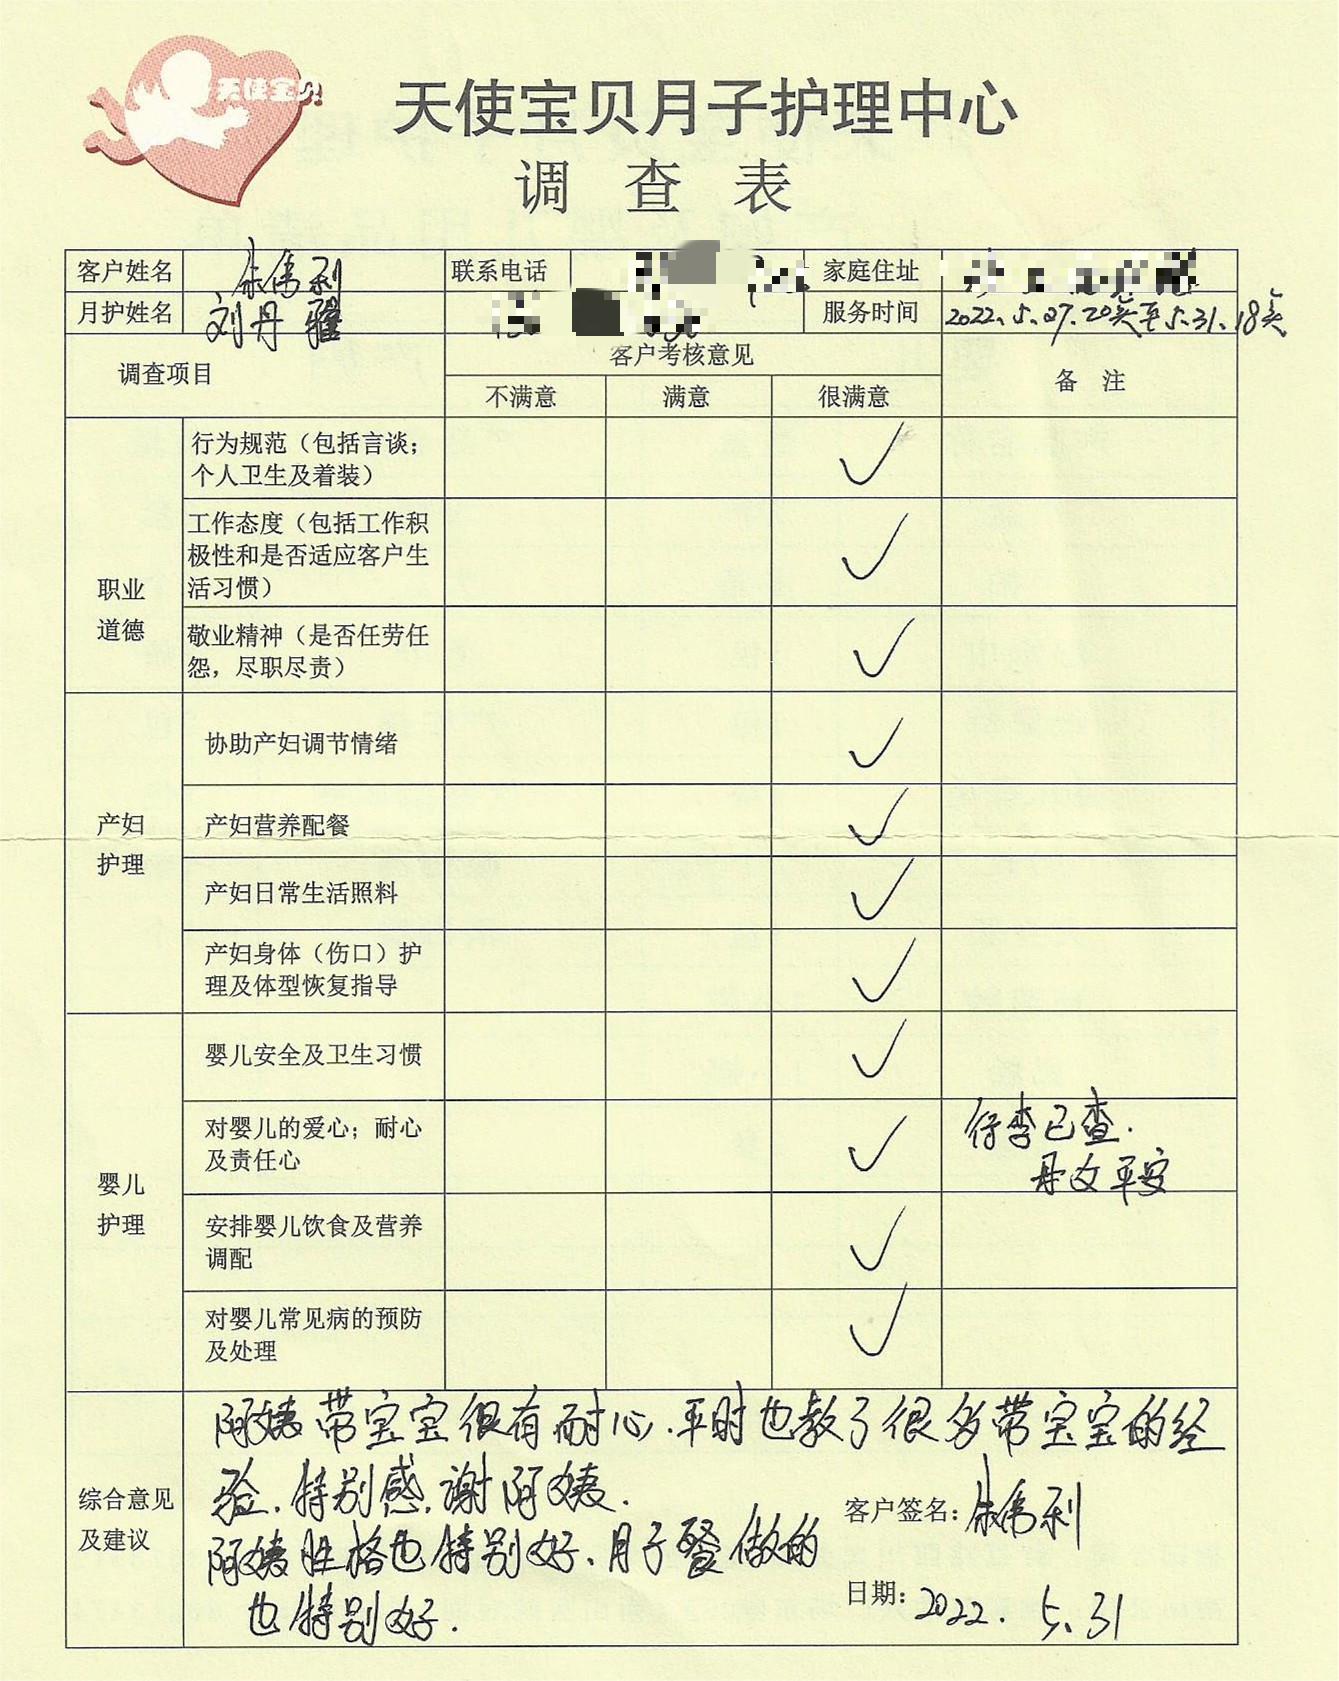 天使宝贝
天使宝贝月子护理中心
调查表
客户姓名 朱伟利 联系电话 家庭住址
月护姓名 刘丹 服务时间 2022.5.07.20点至5.31.18点
调查项目 客户考核意见 备注
不满意 满意 很满意
职业
道德
行为规范（包括言谈；
个人卫生及着装）
工作态度（包括工作积
极性和是否适应客户生
活习惯）
敬业精神（是否任劳任
怨，尽职尽责）
产妇
护理
协助产妇调节情绪
产妇营养配餐
产妇日常生活照料
产妇身体（伤口）护
理及体型恢复指导
婴儿
护理
婴儿安全及卫生习惯
对婴儿的爱心；耐心
及责任心
行李已查.
母女平安
安排婴儿饮食及营养
调配
对婴儿常见病的预防
及处理
综合意见
及建议
阿姨带宝宝很有耐心.平时也教了很多带宝宝的经
验.特别感谢阿姨.
阿姨性格也特别好、月子餐做的
也特别好.
客户签名：朱伟利
日期：2022.5.31